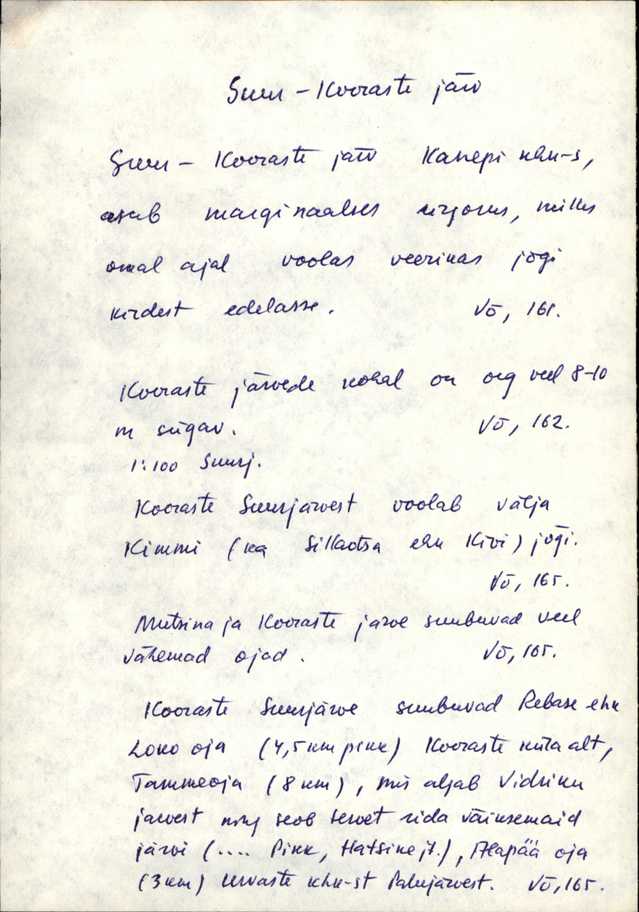 Suur - Kooraste järv
Suur - Kooraste järv Kanepi khk-s,
asub marginaalses ürgorus, milles
omal ajal voolas veerikas jõgi
kirdest edelasse. Võ, 161.
Kooraste järvede kohal on org veel 8-10
m sügav. Võ, 162.
1:100 Suurj.
Kooraste Suurjärvest voolab välja
Kimmi (ka Sillaotsa ehk Kivi) jõgi.
Võ, 165.
Mutsina ja Kooraste järve suubuvad veel
vähemad ojad. Võ, 165.
Kooraste Suurjärve suubuvad Rebase ehk
Loko oja (4,5 km pikk) Kooraste küla alt,
Tammeoja (8 km), mis algab Vidriku
järvest ning seob tervet rida väiksemaid
järvi (.... Pikk, Hatsike jt.), Ahapää oja
(3 km) Urvaste khk-st Palujärvest. Võ, 165.